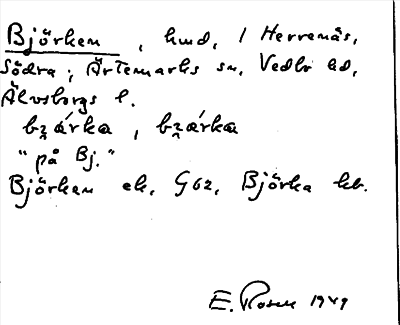 Björkan, hmd, 1 Herrenäs,
Södra; Ärtemarks sn, Vedbo hd,
Älvsborgs l.
bzárka, bzárka
"på Bj."
Björkan ek, G62, Björka hb.
E. Rosen 1949